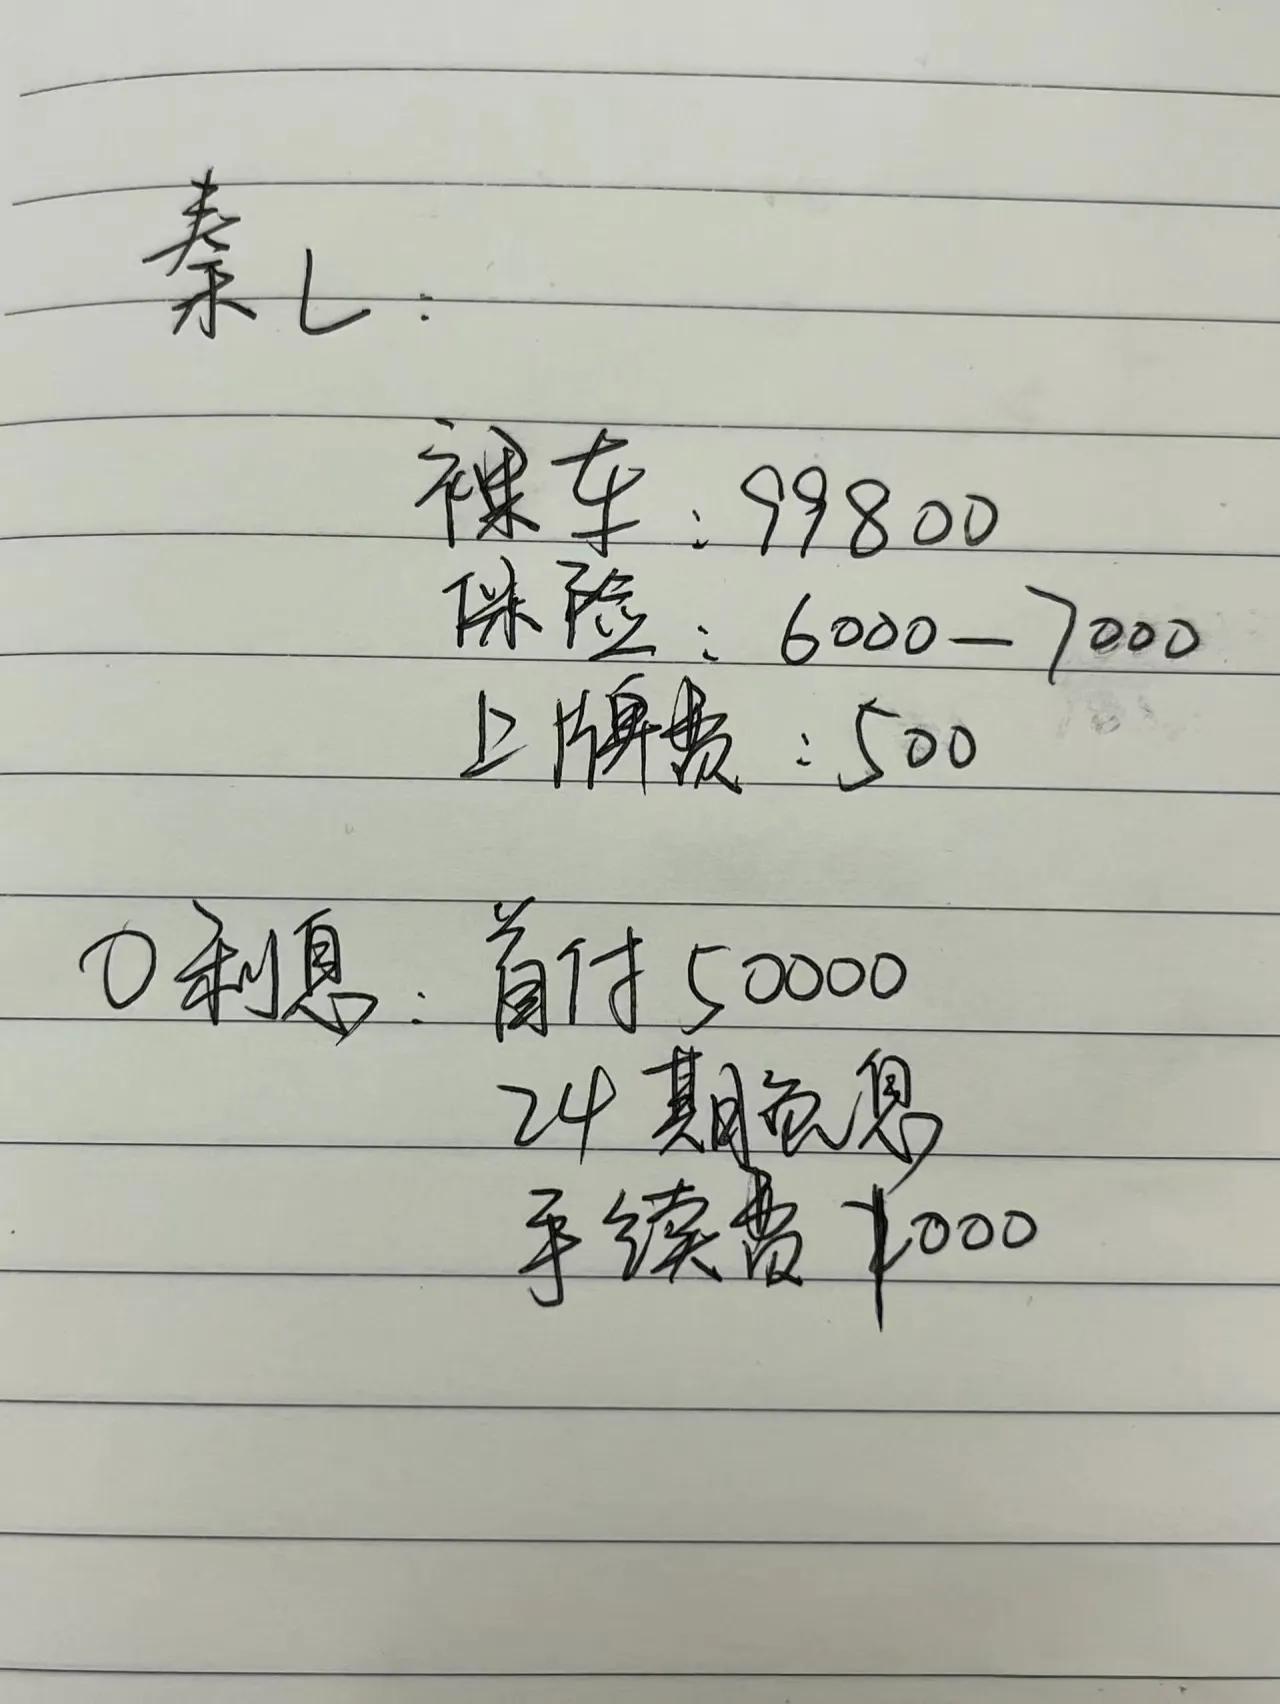 秦L:
裸车:99800
保险:6000-7000
上牌费:500
0利息:首付50000
24期免息
手续费1000